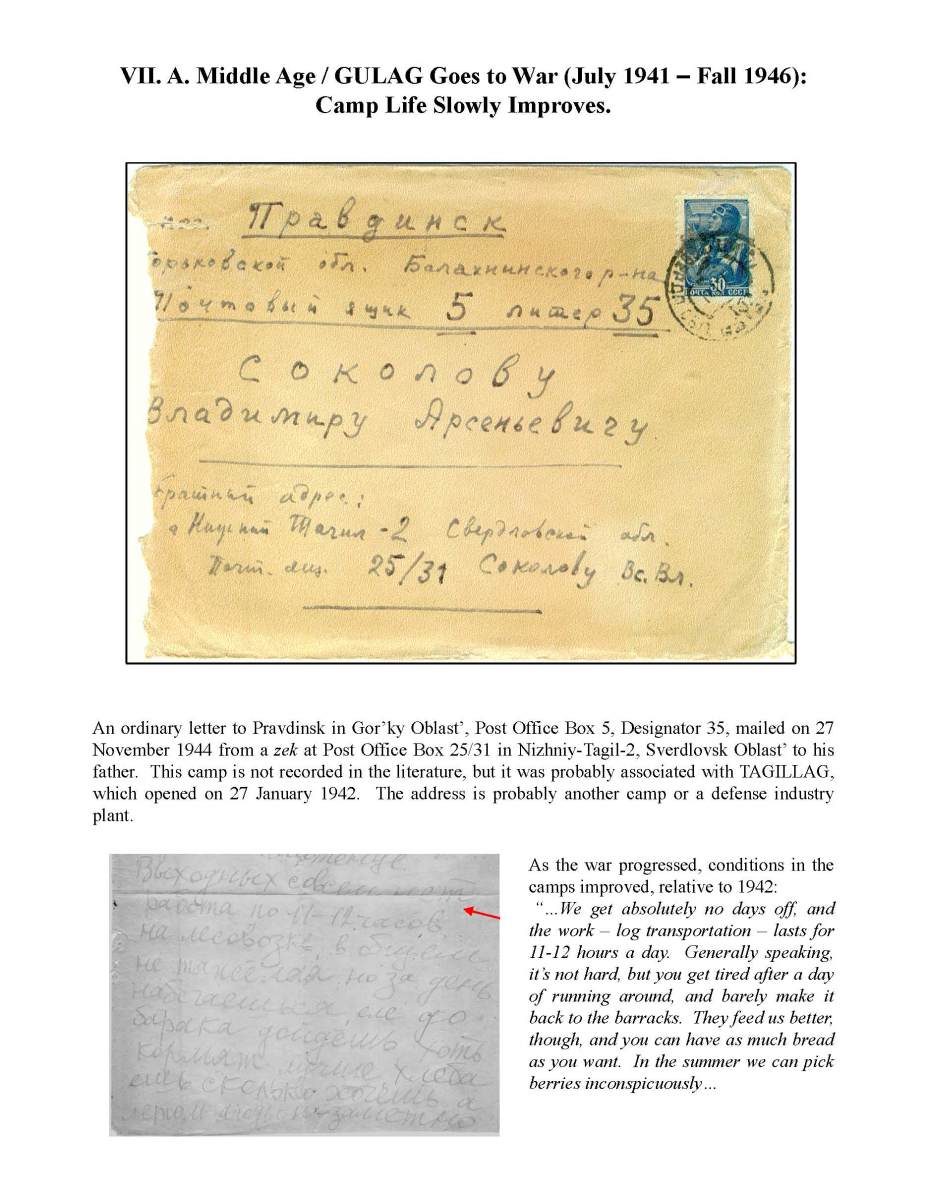 VII. A. Middle Age / GULAG Goes to War (July 1941 – Fall 1946):
Camp Life Slowly Improves.
Правдинск
Горьковской обл. Балахнинского р-на
Почтовый ящик 5 литер 35
Соколову
Владимиру Арсеньевичу
30
ПОЧТА СССР
братный адрес:
Нижний Тагил-2 Свердловской обл.
Почт. ящ. 25/31 Соколову Вс. Вл.
An ordinary letter to Pravdinsk in Gor’ky Oblast’, Post Office Box 5, Designator 35, mailed on 27
November 1944 from a zek at Post Office Box 25/31 in Nizhniy-Tagil-2, Sverdlovsk Oblast’ to his
father. This camp is not recorded in the literature, but it was probably associated with TAGILLAG,
which opened on 27 January 1942. The address is probably another camp or a defense industry
plant.
Выходных совсем нет
работа по 11-12 часов
на лесовозке, в общем
не тяжёлая но за день
набегаешься, еле до
барака дойдёшь хоть
кормят лучше хлеба
ешь сколько хочешь а
летом ягоды незаметно
As the war progressed, conditions in the
camps improved, relative to 1942:
“…We get absolutely no days off, and
the work – log transportation – lasts for
11-12 hours a day. Generally speaking,
it’s not hard, but you get tired after a day
of running around, and barely make it
back to the barracks. They feed us better,
though, and you can have as much bread
as you want. In the summer we can pick
berries inconspicuously…